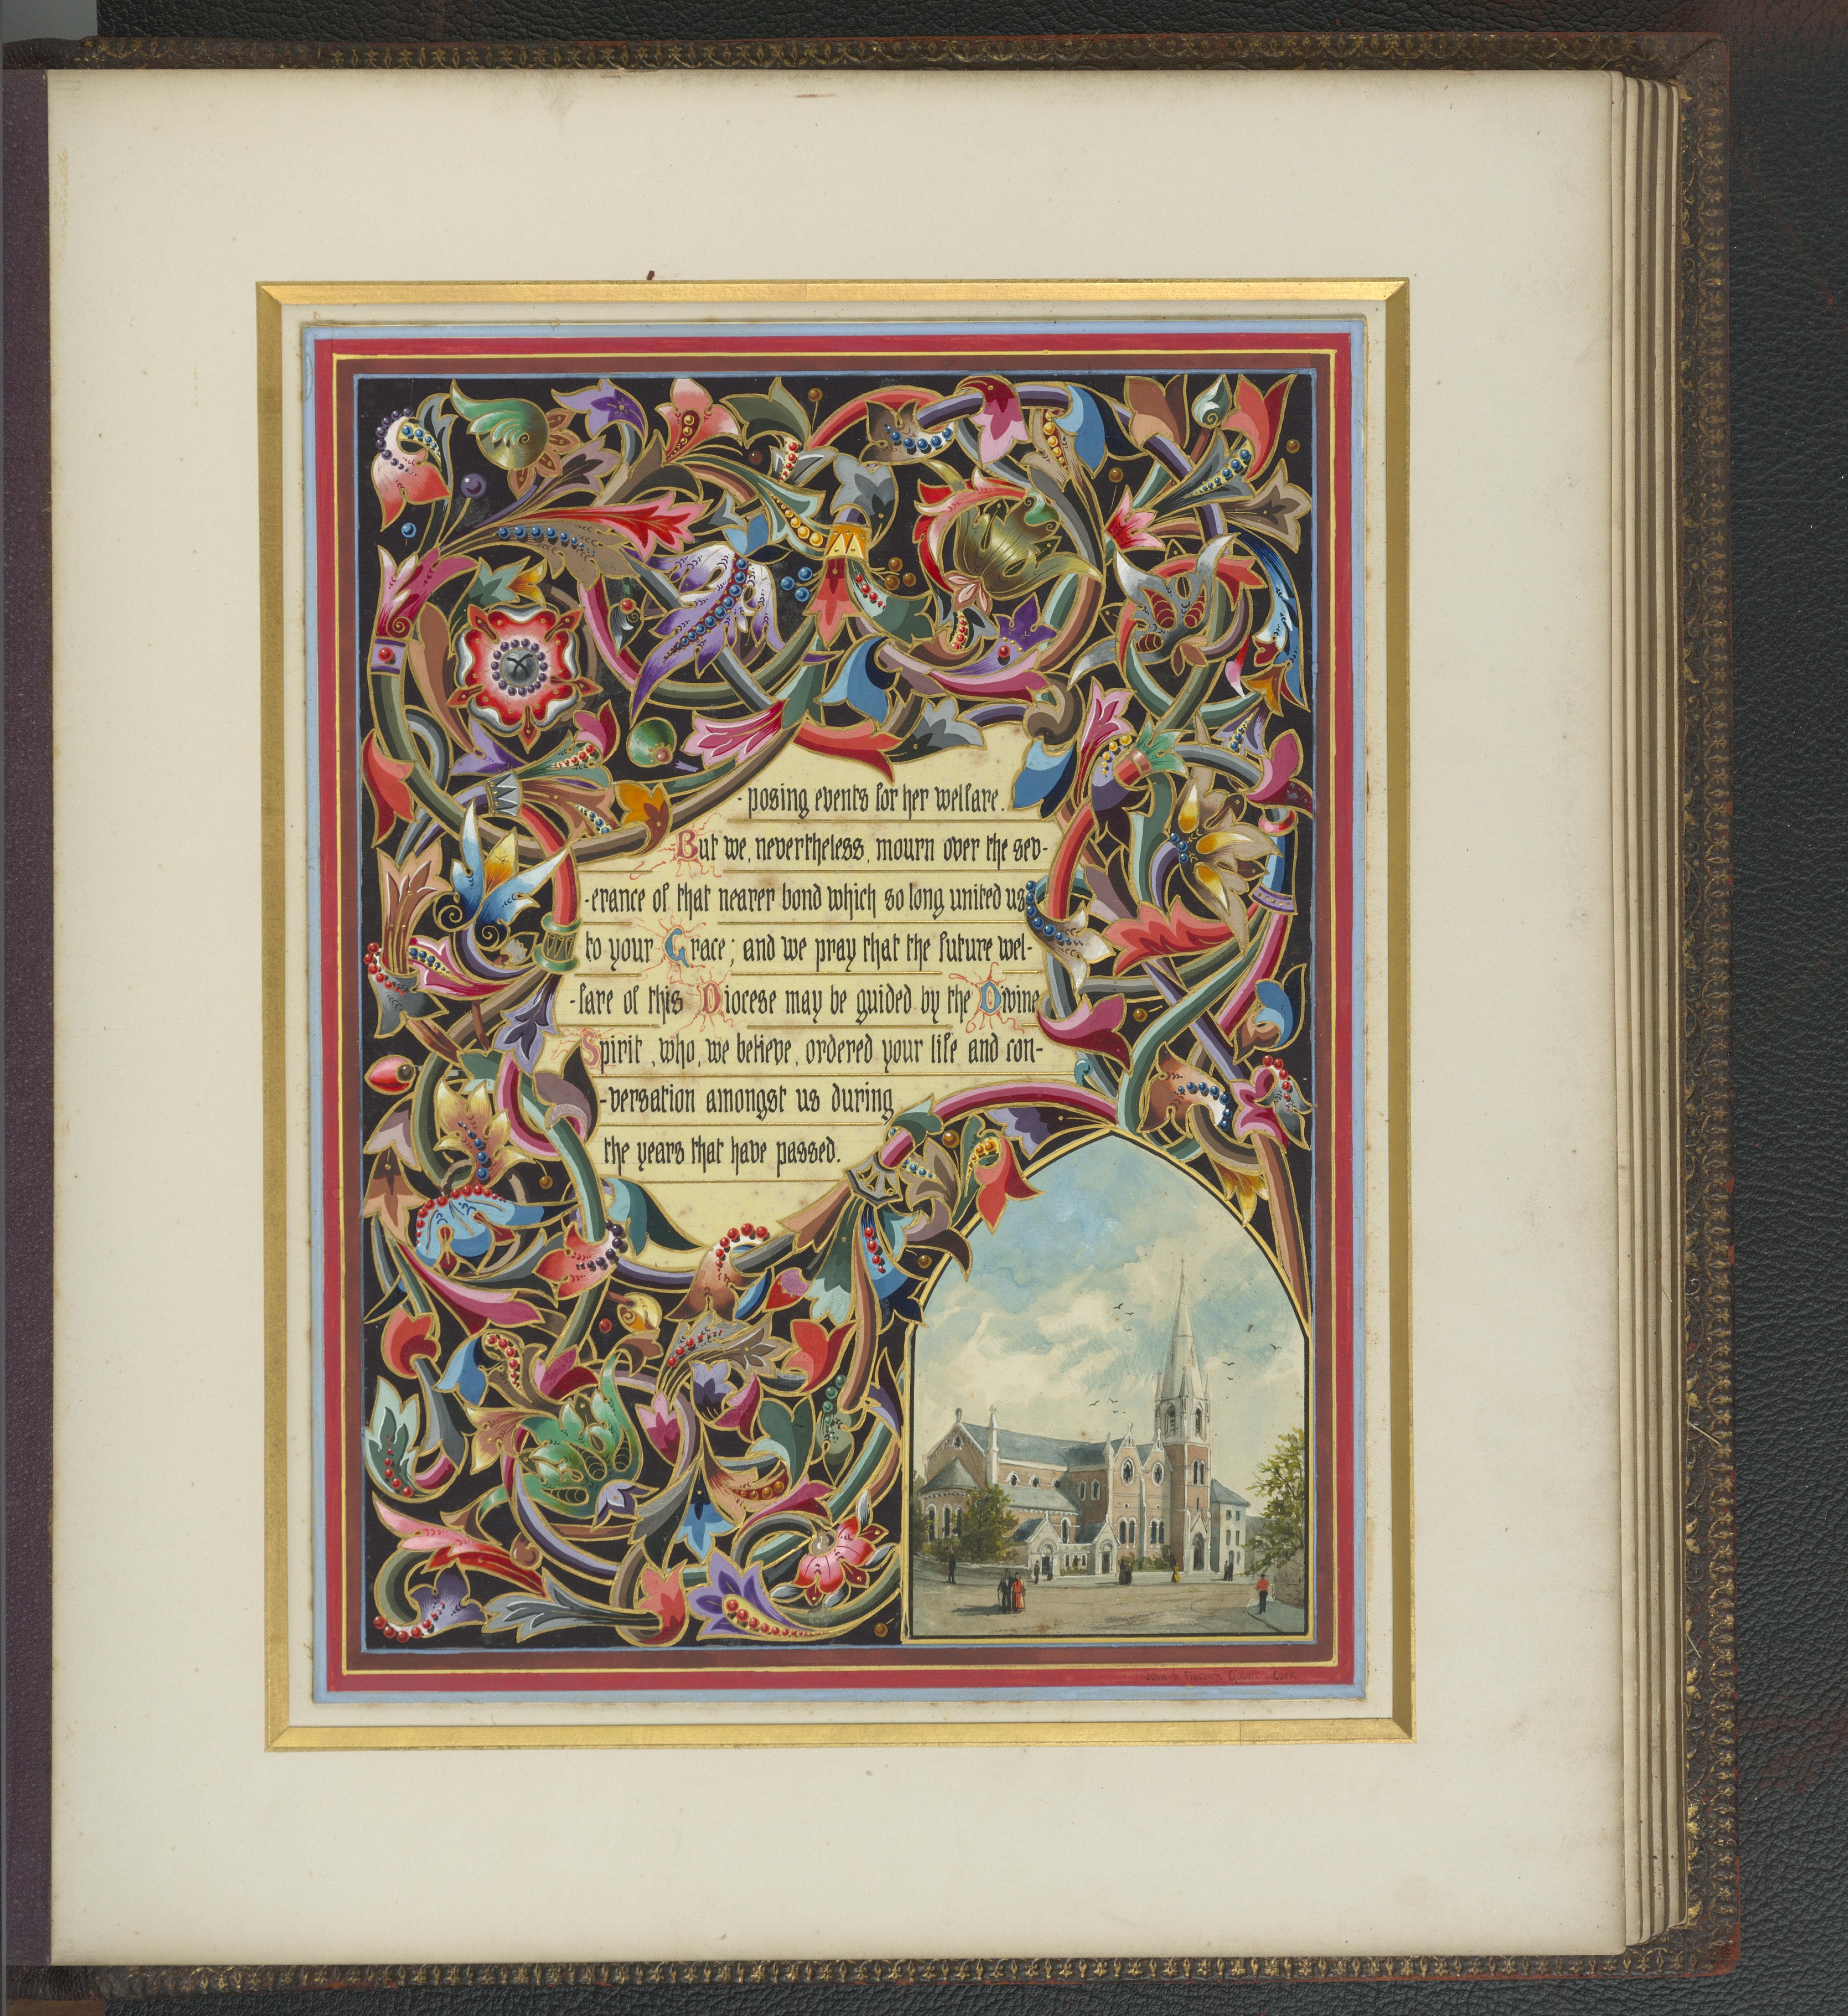 -posing events for her welfare.
But we, nevertheless, mourn over the sev-
-erance of that nearer bond which so long united us
to your Grace; and we pray that the future wel-
-fare of this Diocese may be guided by the Divine
Spirit, who, we believe, ordered your life and con-
-versation amongst us during
the years that have passed.
John & Florence Gilbert - Cork